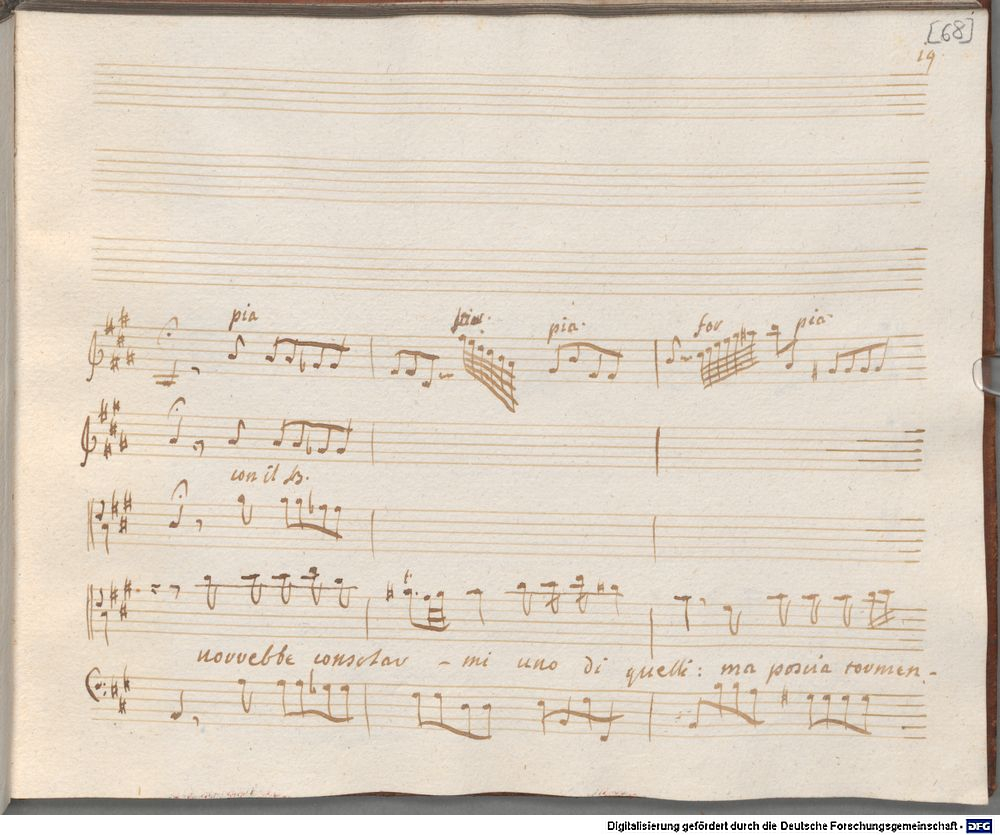 [68]
19.
pia
pia.
for
pia.
con il B.
vorrebbe consolar - mi uno di quelli: ma poscia tormen -
Digitalisierung gefördert durch die Deutsche Forschungsgemeinschaft - DFG